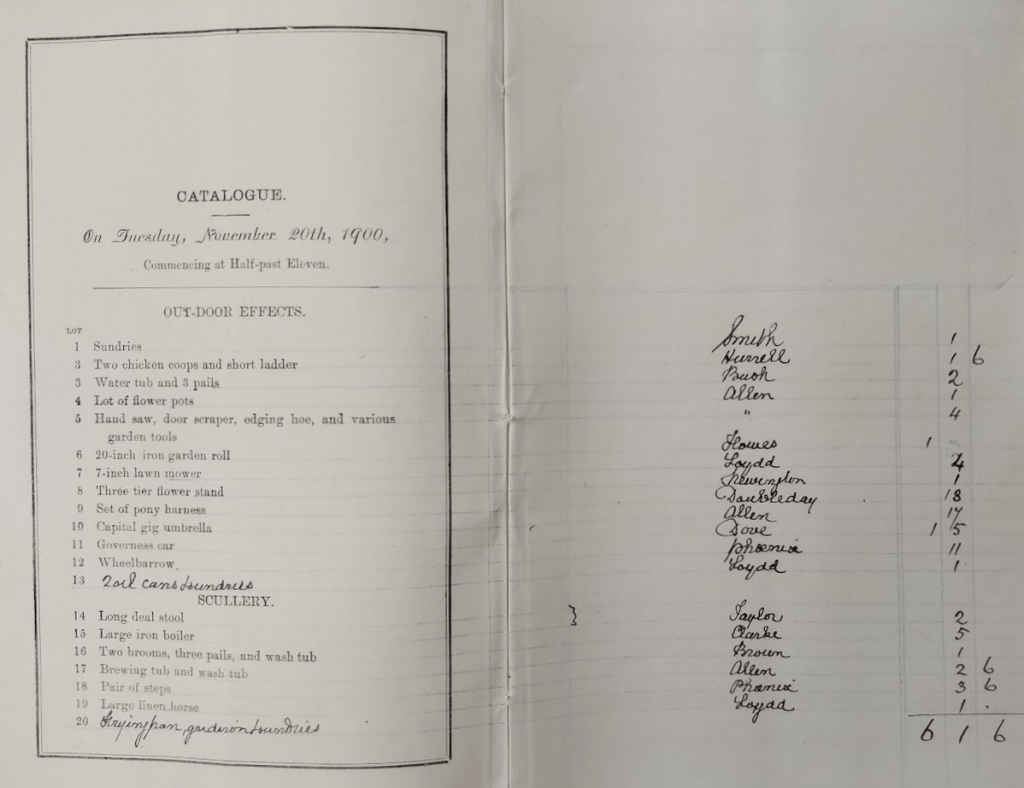 CATALOGUE.
On Tuesday, November 20th, 1900,
Commencing at Half-past Eleven.
OUT-DOOR EFFECTS.
LOT
1 Sundries
3 Two chicken coops and short ladder
3 Water tub and 3 pails
4 Lot of flower pots
5 Hand saw, door scraper, edging hoe, and various
garden tools
6 20-inch iron garden roll
7 7-inch lawn mower
8 Three tier flower stand
9 Set of pony harness
10 Capital gig umbrella
11 Governess car
12 Wheelbarrow
13 2 oil cans & sundries
SCULLERY.
14 Long deal stool
15 Large iron boiler
16 Two brooms, three pails, and wash tub
17 Brewing tub and wash tub
18 Pair of steps
19 Large linen horse
20 Fryingpan, gridiron & sundries
Smith 1
Hurrell 1 6
Bush 2
Allen 1
" 4
Howes 1
Loydd 4
Newington 1
Doubleday 18
Allen 17
Dove 1 5
Phoenix 11
Loydd 1
} Taylor 2
Clarke 5
Brown 1
Allen 2 6
Phoenix 3 6
Loydd 1 .
6 1 6